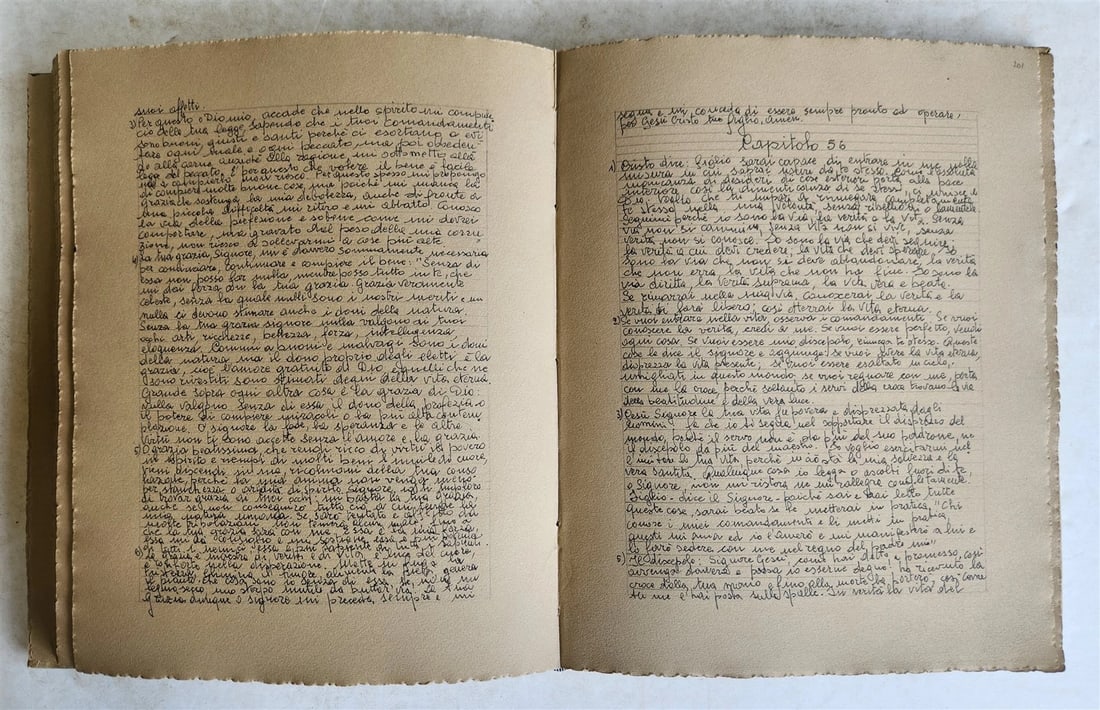 suoi affetti.
3) Per questo o Dio mio, accade che nello spirito mi compiac
cio della tua legge, sapendo che i tuoi comandamenti
sono buoni, giusti e santi perché ci esortano a evi
tare ogni male e ogni peccato, ma poi obbeden
do alla carne, anziché alla ragione, mi sottometto alla
legge del peccato. È per questo che volere il bene è facile
ma a compierlo non riesco. Per questo spesso mi propongo
di compiere molte buone cose, ma poiché mi manca la
grazia che sostenga la mia debolezza, anche di fronte a
una piccola difficoltà mi ritiro e mi abbatto. Conosco
la via della perfezione e so bene come mi devrei
comportare, ma gravato dal peso della mia corru
zione, non riesco a sollevarmi a cose più alte.
4) La tua grazia, Signore, mi è davvero sommamente necessaria
per cominciare, continuare e compiere il bene. "Senza di
essa non posso far nulla, mentre posso tutto in te, che
mi dai forza con la tua grazia. Grazia veramente
celeste, senza la quale nulli sono i nostri meriti e un
nulla si devono stimare anche i doni della natura.
Senza la tua grazia signore nulla valgono di tuoi
occhi arti, ricchezze, bellezza, forza, intelligenza,
eloquenza. Comuni a buoni e malvagi sono i doni
della natura ma il dono proprio degli eletti è la
grazia, cioè l'amore gratuito di Dio, e quelli che ne
sono rivestiti sono stimati degni della vita eterna.
Grande sopra ogni altra cosa è la grazia di Dio:
nulla valgono senza di essa il dono della profezia o
il potere di compiere miracoli o la più alta contem
plazione. O signore la fede, la speranza e le altre
virtù non ti sono accette senza il amore e la grazia.
5) O grazia beatissima, che rendi ricco di virtù il povero
in spirito e riempi di molti beni l'umile di cuore,
vieni, discendi su me, ricolmami della tua conso
lazione, perché la mia anima non venga meno
per stanchezza o aridità di spirito. Signore, ti imploro
di trovar grazia ai tuoi occhi: mi basta la tua grazia,
anche se non conseguirò tutto ciò a cui tende la
mia natura umana. Se sarò tentato e afflitto da
molte tribolazioni non temerò alcun male, fino a
che la tua grazia sarà con me. Essa è la mia forza,
essa mi dà consiglio e mi sostiene, essa è più potente
di tutti i nemici
6) La grazia, maestra di verità e di vita, luce del cuore,
conforto nella disperazione. Mette in fuga la
tristezza, elimina il timore, alimenta la pietà, genera
il pianto. Che cosa sono io senza di essa se non un
legno secco, uno sterpo inutile da buttar via. La tua
grazia dunque o signore mi preceda, sempre e mi
201
segua e mi conceda di essere sempre pronto ad operare,
per Gesù Cristo tuo figlio, amen.
Capitolo 56
1) Cristo dice: Figlio sarai capace di entrare in me nella
misura in cui saprai uscire da te stesso. Come l'assoluta
mancanza di desideri di cose esteriori porta alla pace
interiore così la dimenticanza di se stessi ci unisce a
Dio. Voglio che tu impari a rinnegare completamente
te stesso nella mia volontà, senza ribellarti o lamentarti.
Seguimi perché io sono la via, la verità e la vita. Senza
via non si cammina, senza vita non si vive, senza
verità non si conosce. Io sono la via che devi seguire,
la verità a cui devi credere, la vita che devi sperare. Io
sono la via che non si deve abbandonare, la verità
che non erra, la vita che non ha fine. Io sono la
via diritta, la verità suprema, la vita vera e beata.
Se rimarrai nella mia via, conoscerai la verità e la
verità ti farà libero; così otterrai la vita eterna.
2) Se vuoi entrare nella vita, osserva i comandamenti. Se vuoi
conoscere la verità, credi a me. Se vuoi essere perfetto, vendi
ogni cosa. Se vuoi essere mio discepolo, rinnega te stesso. Queste
cose le dice il signore e aggiunge: se vuoi avere la vita eterna,
disprezza la vita presente, se vuoi essere esaltato in cielo,
umigliati in questo mondo, se vuoi regnare con me, porta
con me la croce, perché soltanto i servi della croce trovano la via
della beatitudine e della vera luce.
3) Gesù Signore la tua vita fu povera e disprezzata dagli
uomini fa che io ti segua nel sopportare il disprezzo del
mondo, poiché il servo non è da più del suo padrone, né
il discepolo da più del maestro. Io voglio esercitarmi nel
l'imitar la tua vita perché in essa sta la mia salvezza e la
vera santità. Qualunque cosa io legga o ascolti fuori di te,
o Signore, non mi ristora né mi rallegra completamente.
Figlio - dice il Signore - poiché sai e hai letto tutte
queste cose, sarai beato se le metterai in pratica. "Chi
conosce i miei comandamenti e li mette in pratica,
questi mi ama ed io l'amerò e mi manifesterò a lui e
lo farò sedere con me nel regno del padre mio"
5) Il discepolo: Signore Gesù, come hai detto e promesso, così
avvenga davvero e possa io esserne degno. Ho ricevuto la
croce dalla tua mano e fino alla morte la porterò, così come
tu me l'hai posta sulle spalle. In verità la vita del